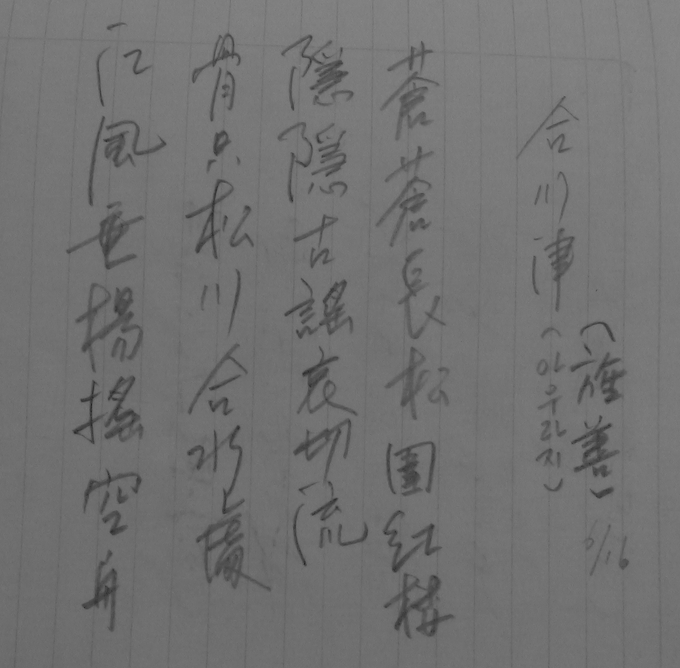 合川津
(旌善)
(아우라지)
蒼蒼長松圍紅樓
隱隱古謠哀切流
骨只松川合水處
江風垂楊搖空舟